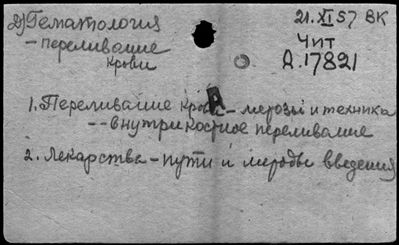 2) Гематология
– переливание
крови
21.XI 57 ВК
Чит
Д.17821
1. Переливание крови – методы и техника
-- внутрикостное переливание
2. Лекарства – пути и методы введения